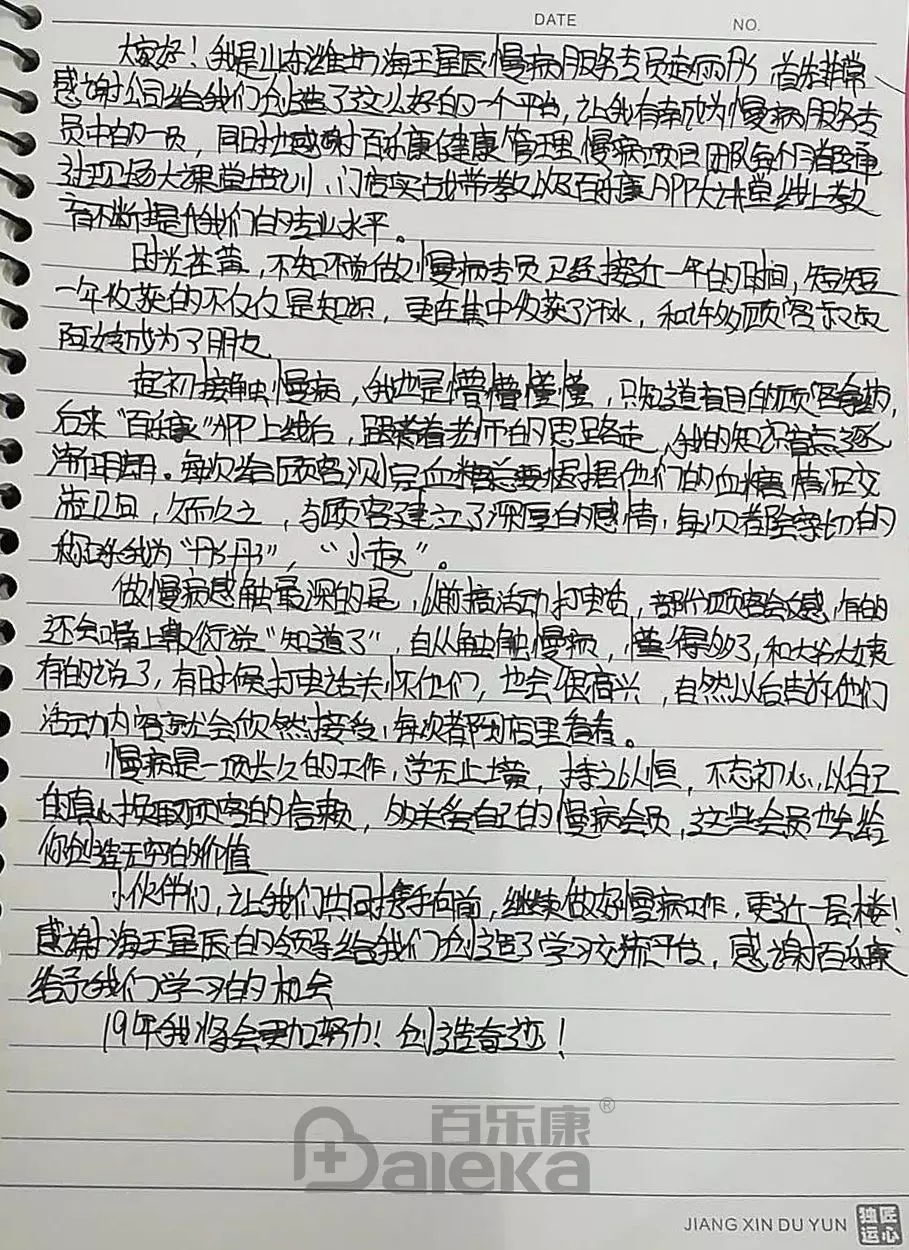 DATE
NO.
大家好！我是山东潍坊海王星辰慢病服务专员赵丽丹，首先非常
感谢公司给我们创造了这么好的一个平台，让我有幸成为慢病服务专
员中的一员，同时也感谢百乐康健康管理慢病项目团队每个月
现场大课堂培训、门店实战带教以及百乐康APP大讲堂线上教
育不断提升我们的专业水平。
时光荏苒，不知不觉做慢病专员已经接近一年的时间，短短
一年收获的不仅仅是知识，更在其中收获了汗水，和许多顾客叔叔
阿姨成为了朋友
起初接触慢病，我也是懵懵懂懂，只知道盲目的顾客拿药，
后来“百乐康”APP上线后，跟着着老师的思路走，我的知识盲点逐
渐明朗。每次给顾客测完血糖总要根据他们的血糖情况交
流几句，久而久之，与顾客建立了深厚的感情，每次都会亲切的
称呼我为“丹丹”，“小赵”。
做慢病感触最深的是，以前搞活动打电话，部分顾客会反感，有的
还会嘴上敷衍说“知道了”，自从接触慢病，懂得多了，和大爷大姨
有的说了，有时候打电话关怀他们，也会很高兴，自然以后告诉他们
活动内容就会欣然接受，每次都到店里看看。
慢病是一项长久的工作，学无止境，持之以恒，不忘初心，以自己
的真心换取顾客的信赖，多关爱自己的慢病会员，这些会员也会给
你创造无穷的价值
小伙伴们，让我们共同携手向前，继续做好慢病工作，更近一层楼！
感谢海王星辰的领导给我们创造了学习交流平台，感谢百乐康
给予我们学习的机会
19年我将会更加努力！创造奇迹！
百乐康®
Baleka
JIANG XIN DU YUN
独匠
运心